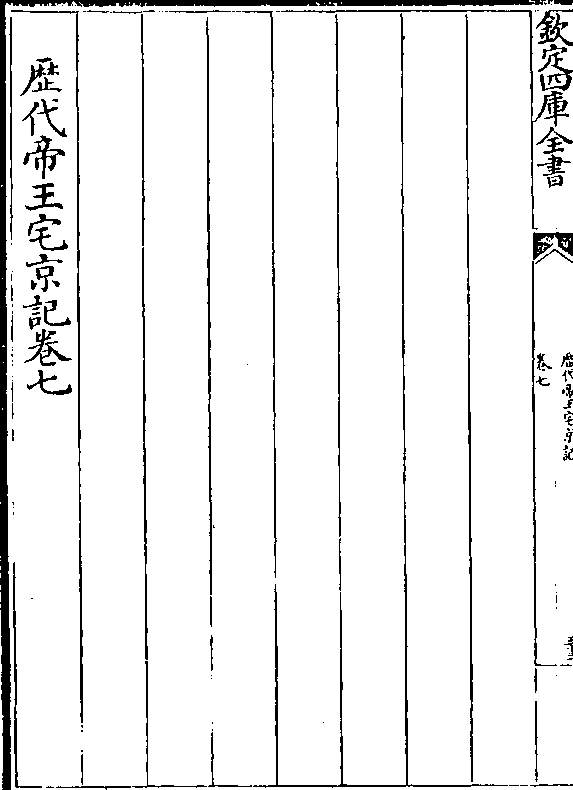 欽定四庫全書
歴代帝王宅京記
卷七
歴代帝王宅京記卷七